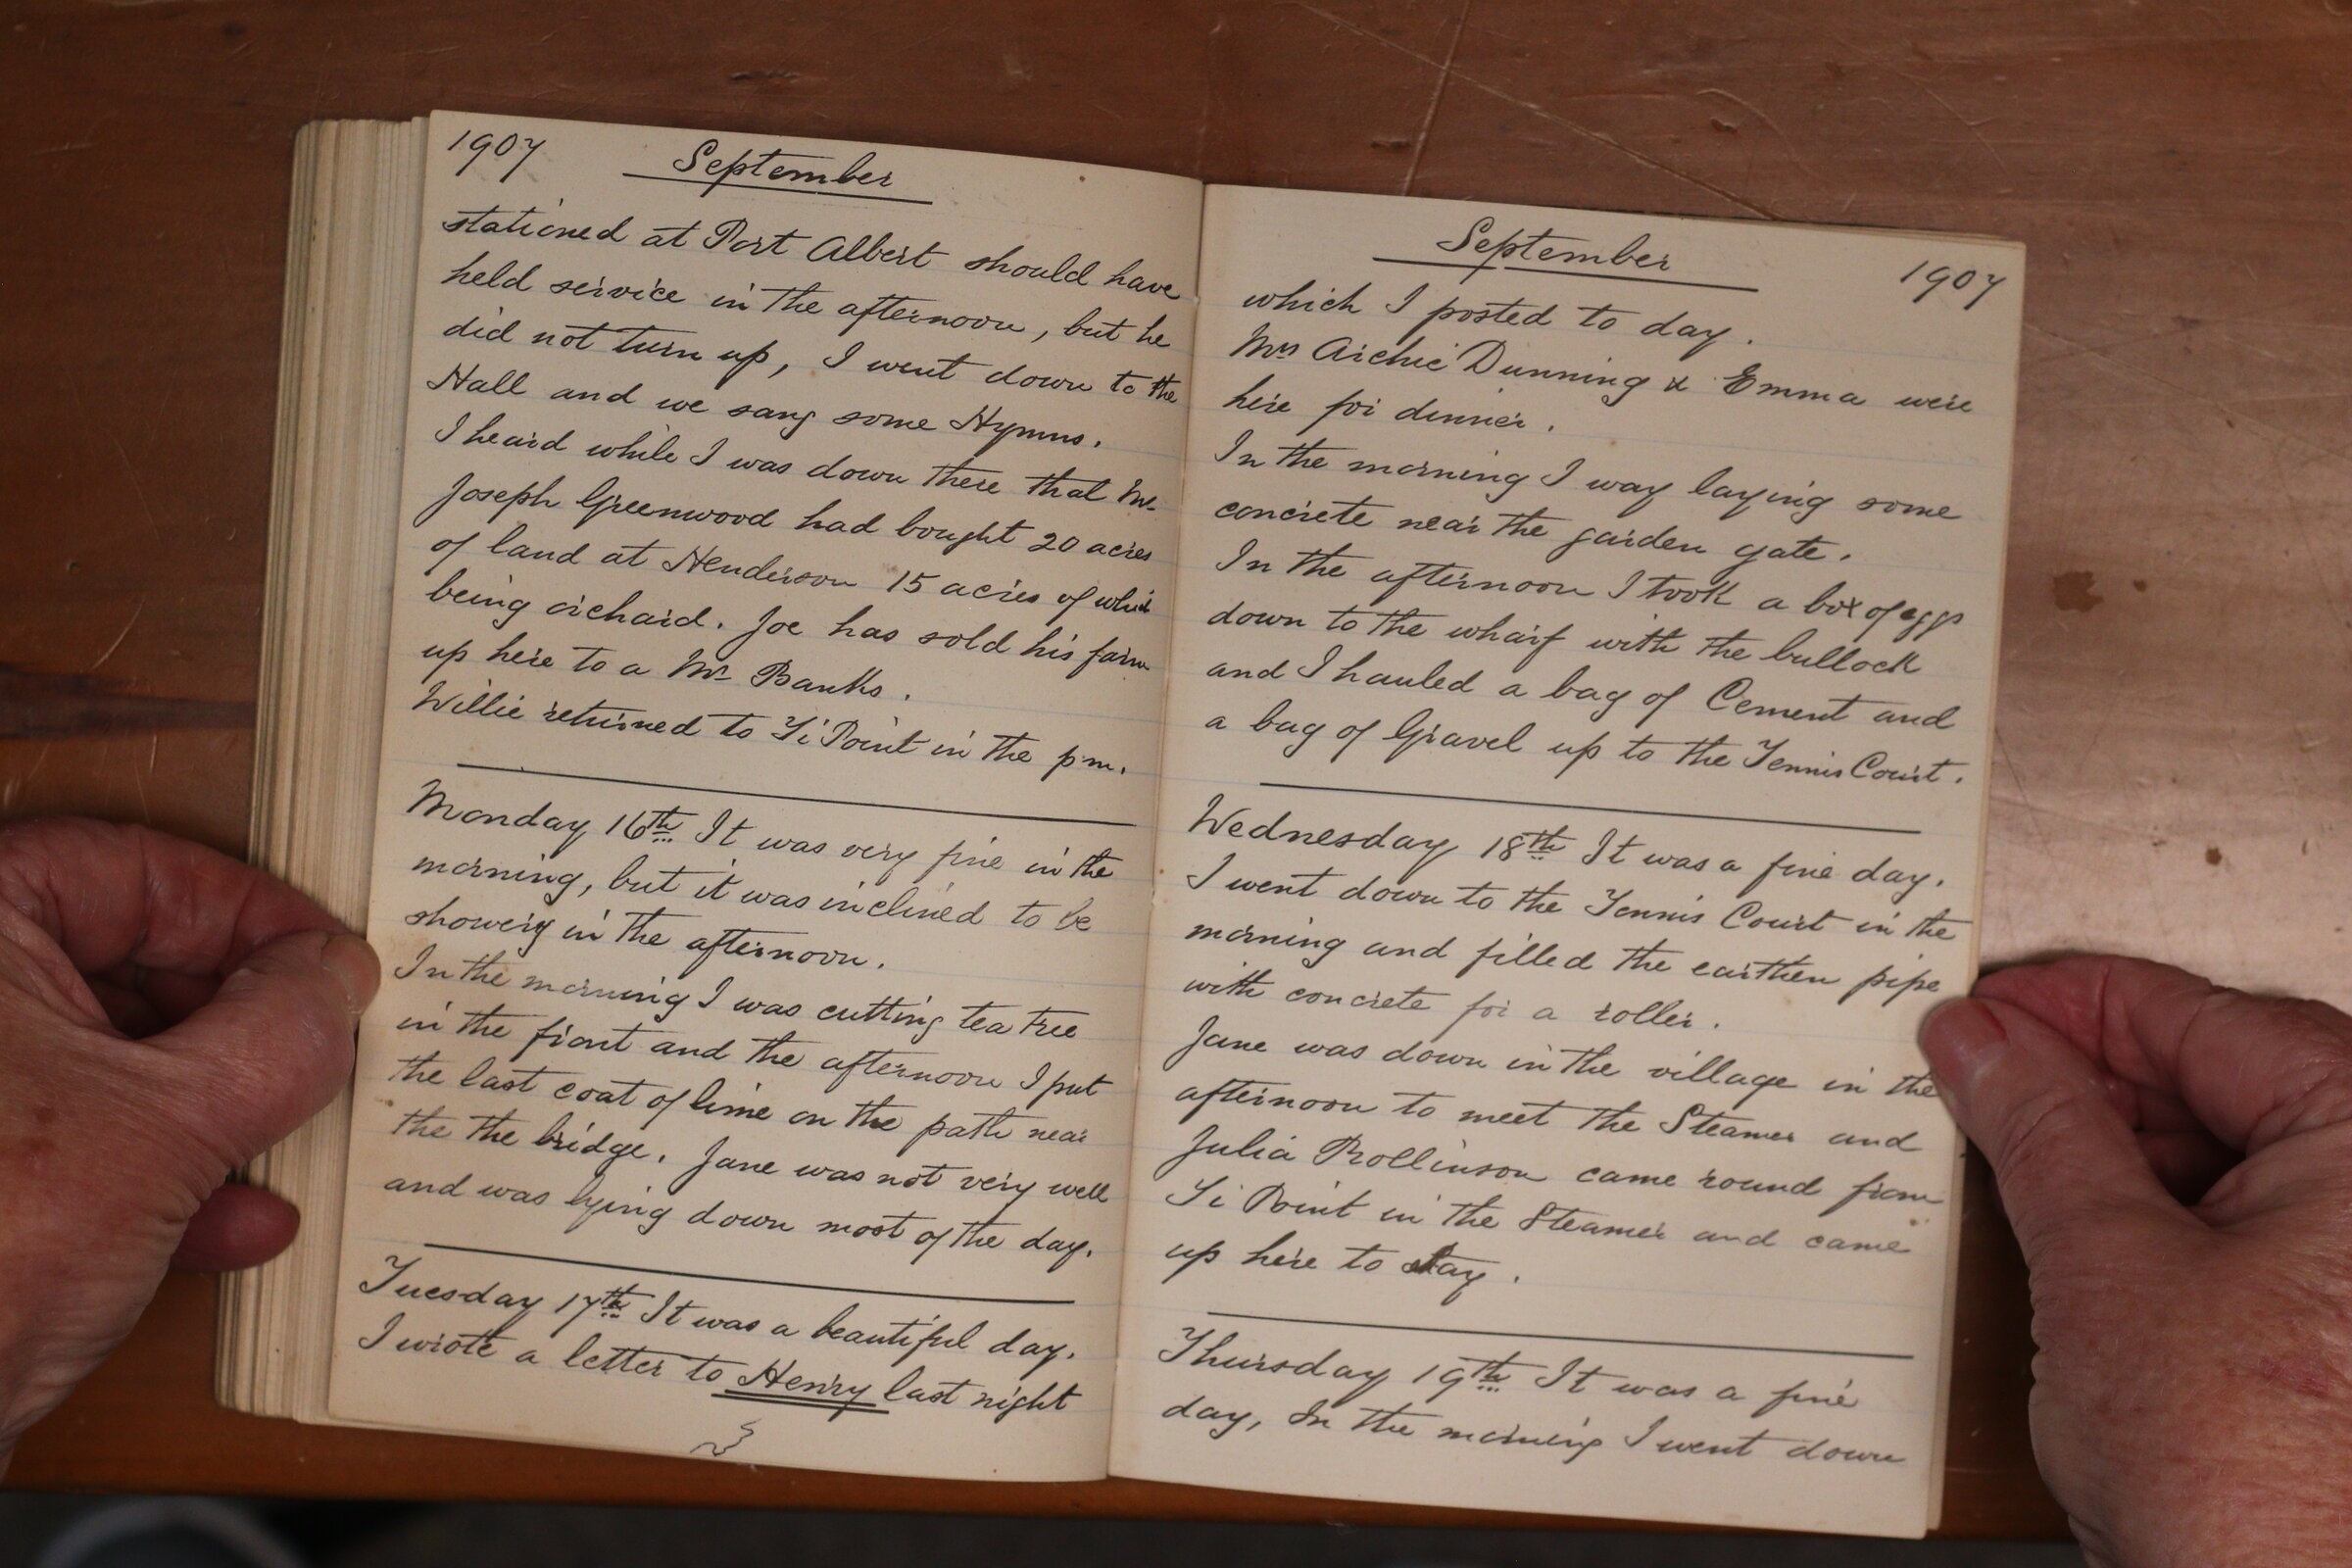 1907
September
stationed at Port Albert should have
held service in the afternoon, but he
did not turn up, I went down to the
Hall and we sang some Hymns.
I heard while I was down there that Mr
Joseph Greenwood had bought 20 acres
of land at Henderson 15 acres of which
being orchard. Joe has sold his farm
up here to a Mr Banks.
Willie returned to Ti Point in the pm.
Monday 16th It was very fine in the
morning, but it was inclined to be
showery in the afternoon.
In the morning I was cutting tea tree
in the front and the afternoon I put
the last coat of lime on the path near
the the bridge. Jane was not very well
and was lying down most of the day.
Tuesday 17th It was a beautiful day.
I wrote a letter to Henry last night
September
1907
which I posted to day.
Mrs Archie Dunning & Emma were
here for dinner.
In the morning I way laying some
concrete near the garden gate.
In the afternoon I took a box of eggs
down to the wharf with the bullock
and I hauled a bag of Cement and
a bag of Gravel up to the Tennis Court.
Wednesday 18th It was a fine day.
I went down to the Tennis Court in the
morning and filled the earthen pipe
with concrete for a roller.
Jane was down in the village in the
afternoon to meet the Steamer and
Julia Rollinson came round from
Ti Point in the Steamer and came
up here to stay.
Thursday 19th It was a fine
day, In the morning I went down